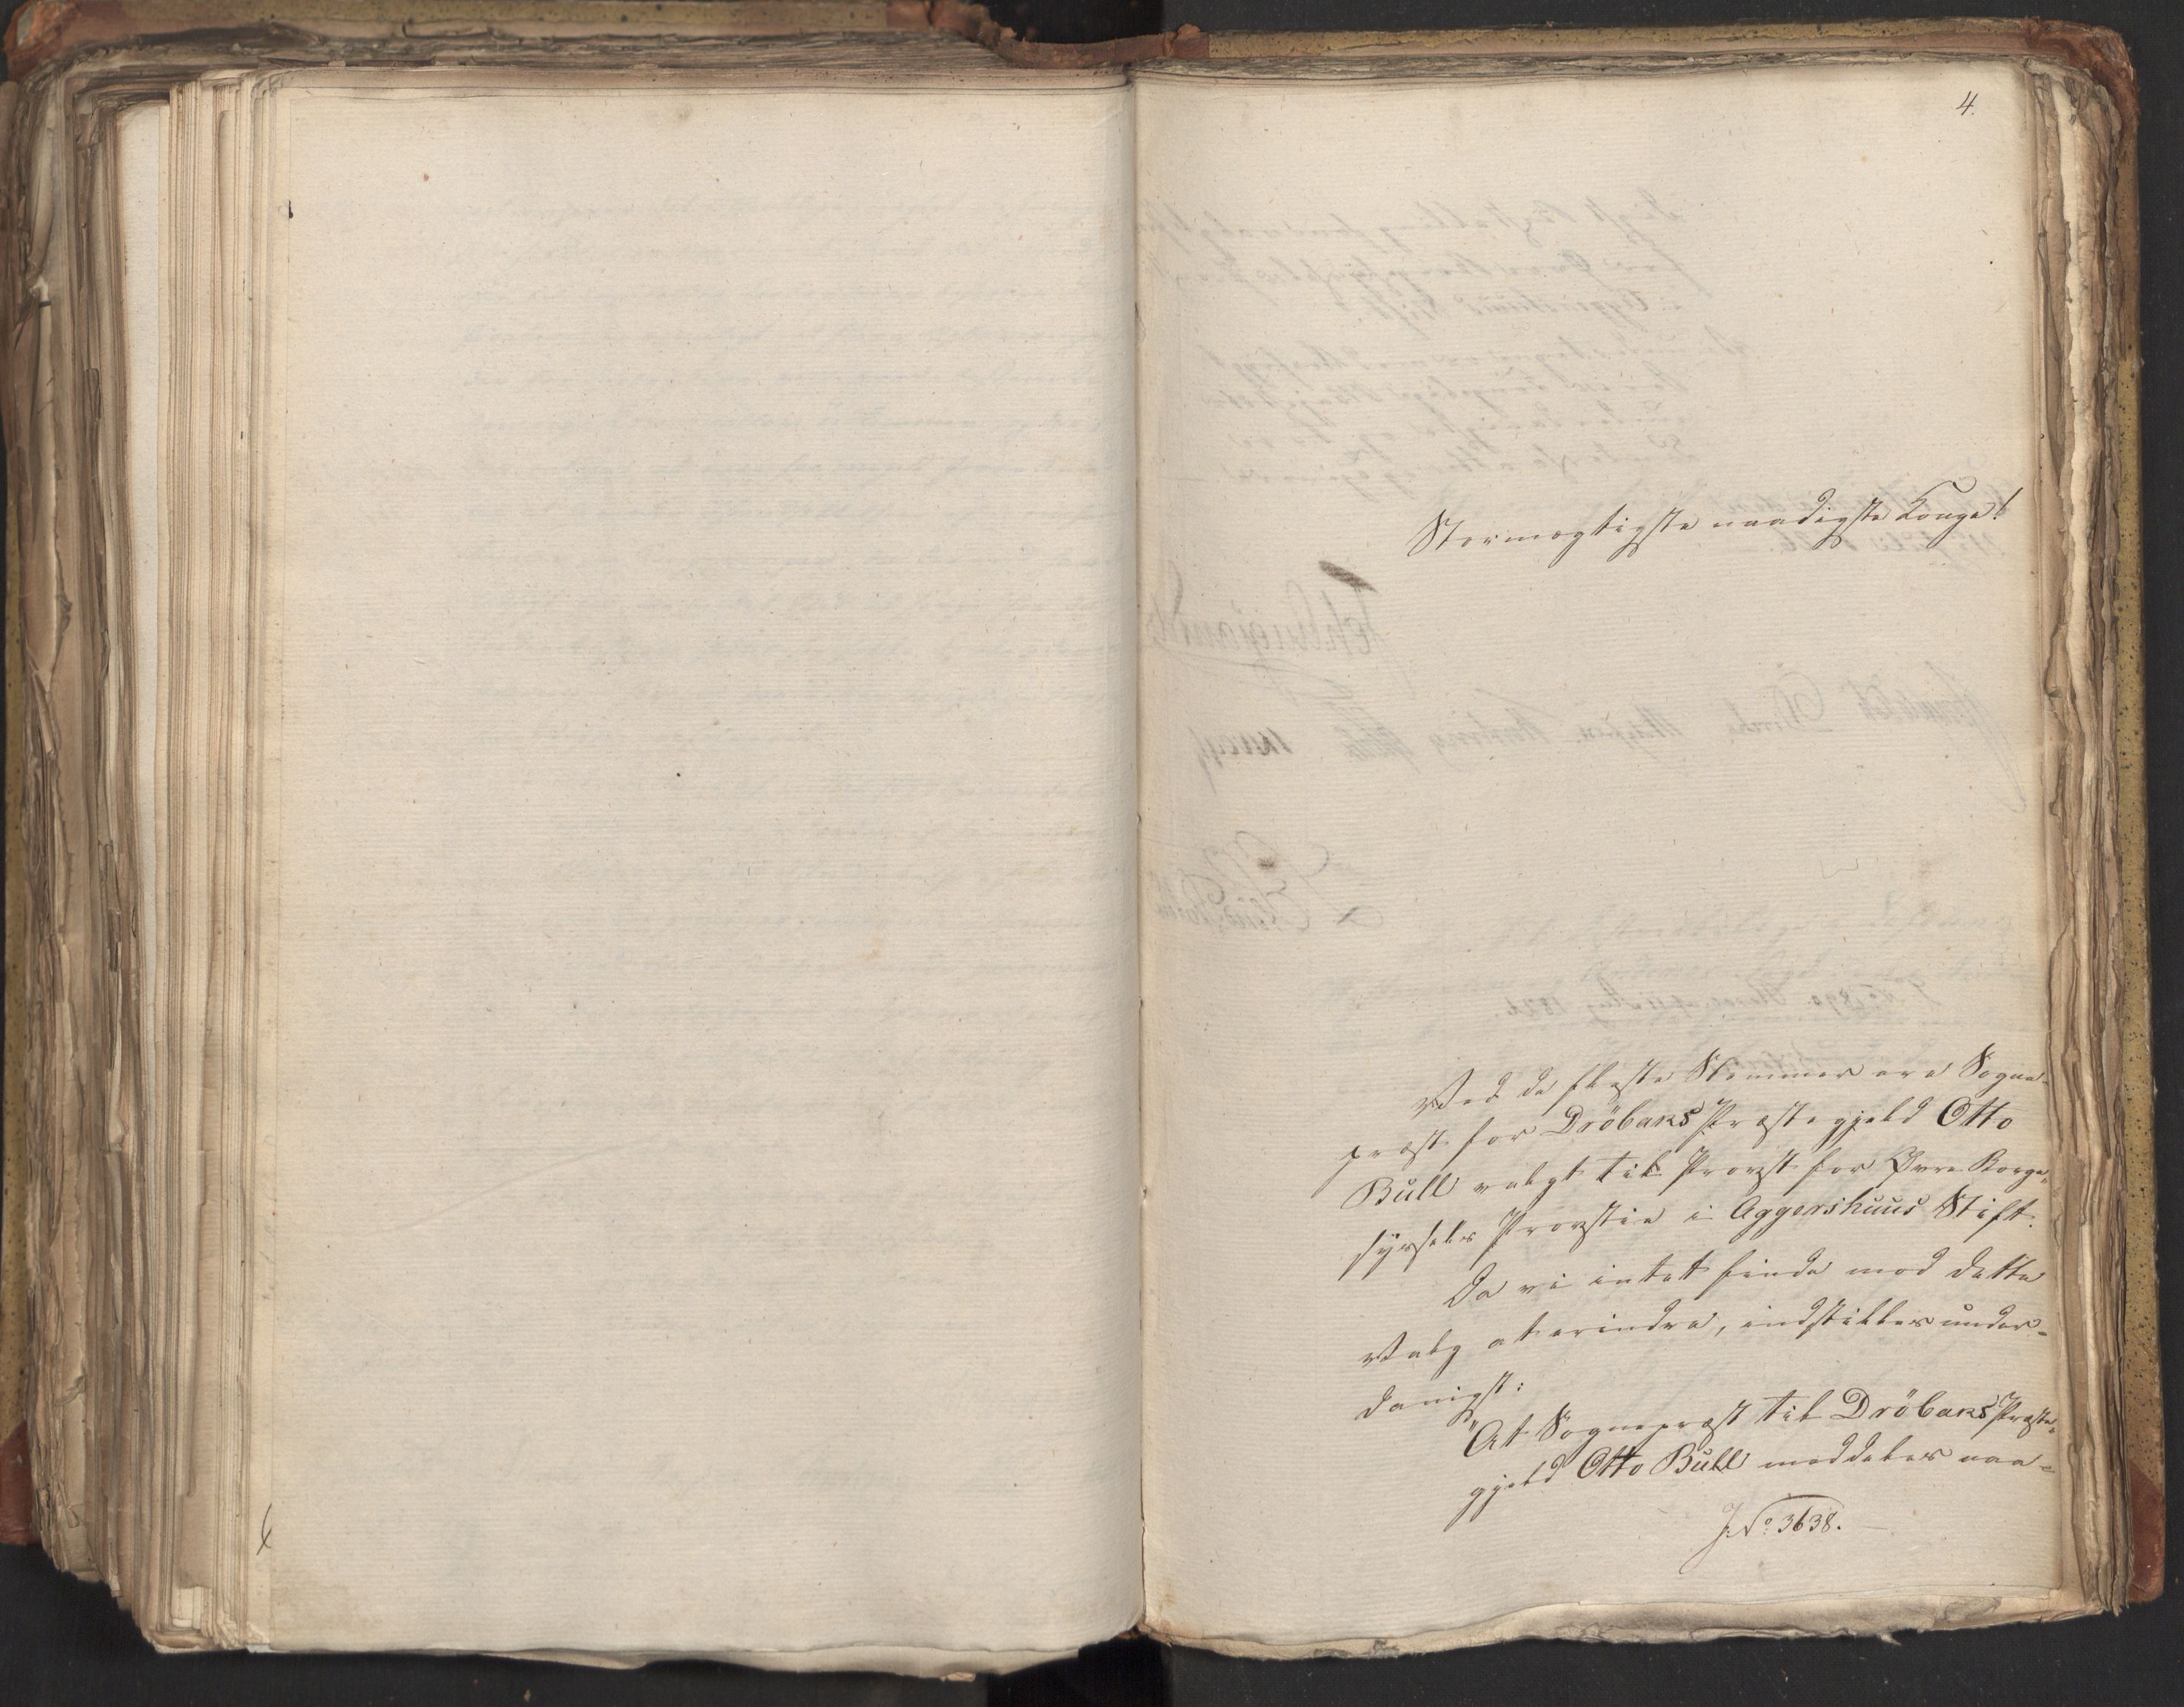 4.
Stormægtigste naadigste Konge!
Ved de fleste Stemmer ere Sogne-
præst for Dröbaks Præstegjeld Otto
Bull valgt til Provst for Øvre Borge-
syssels Provstie i Aggershuus Stift.
Da vi intet finde mod dette
Valg at erindre, indstilles under-
danigst:
"At Sognepræst til Dröbaks Præste-
gjeld Otto Bull meddeles naa-
J. No 3638.